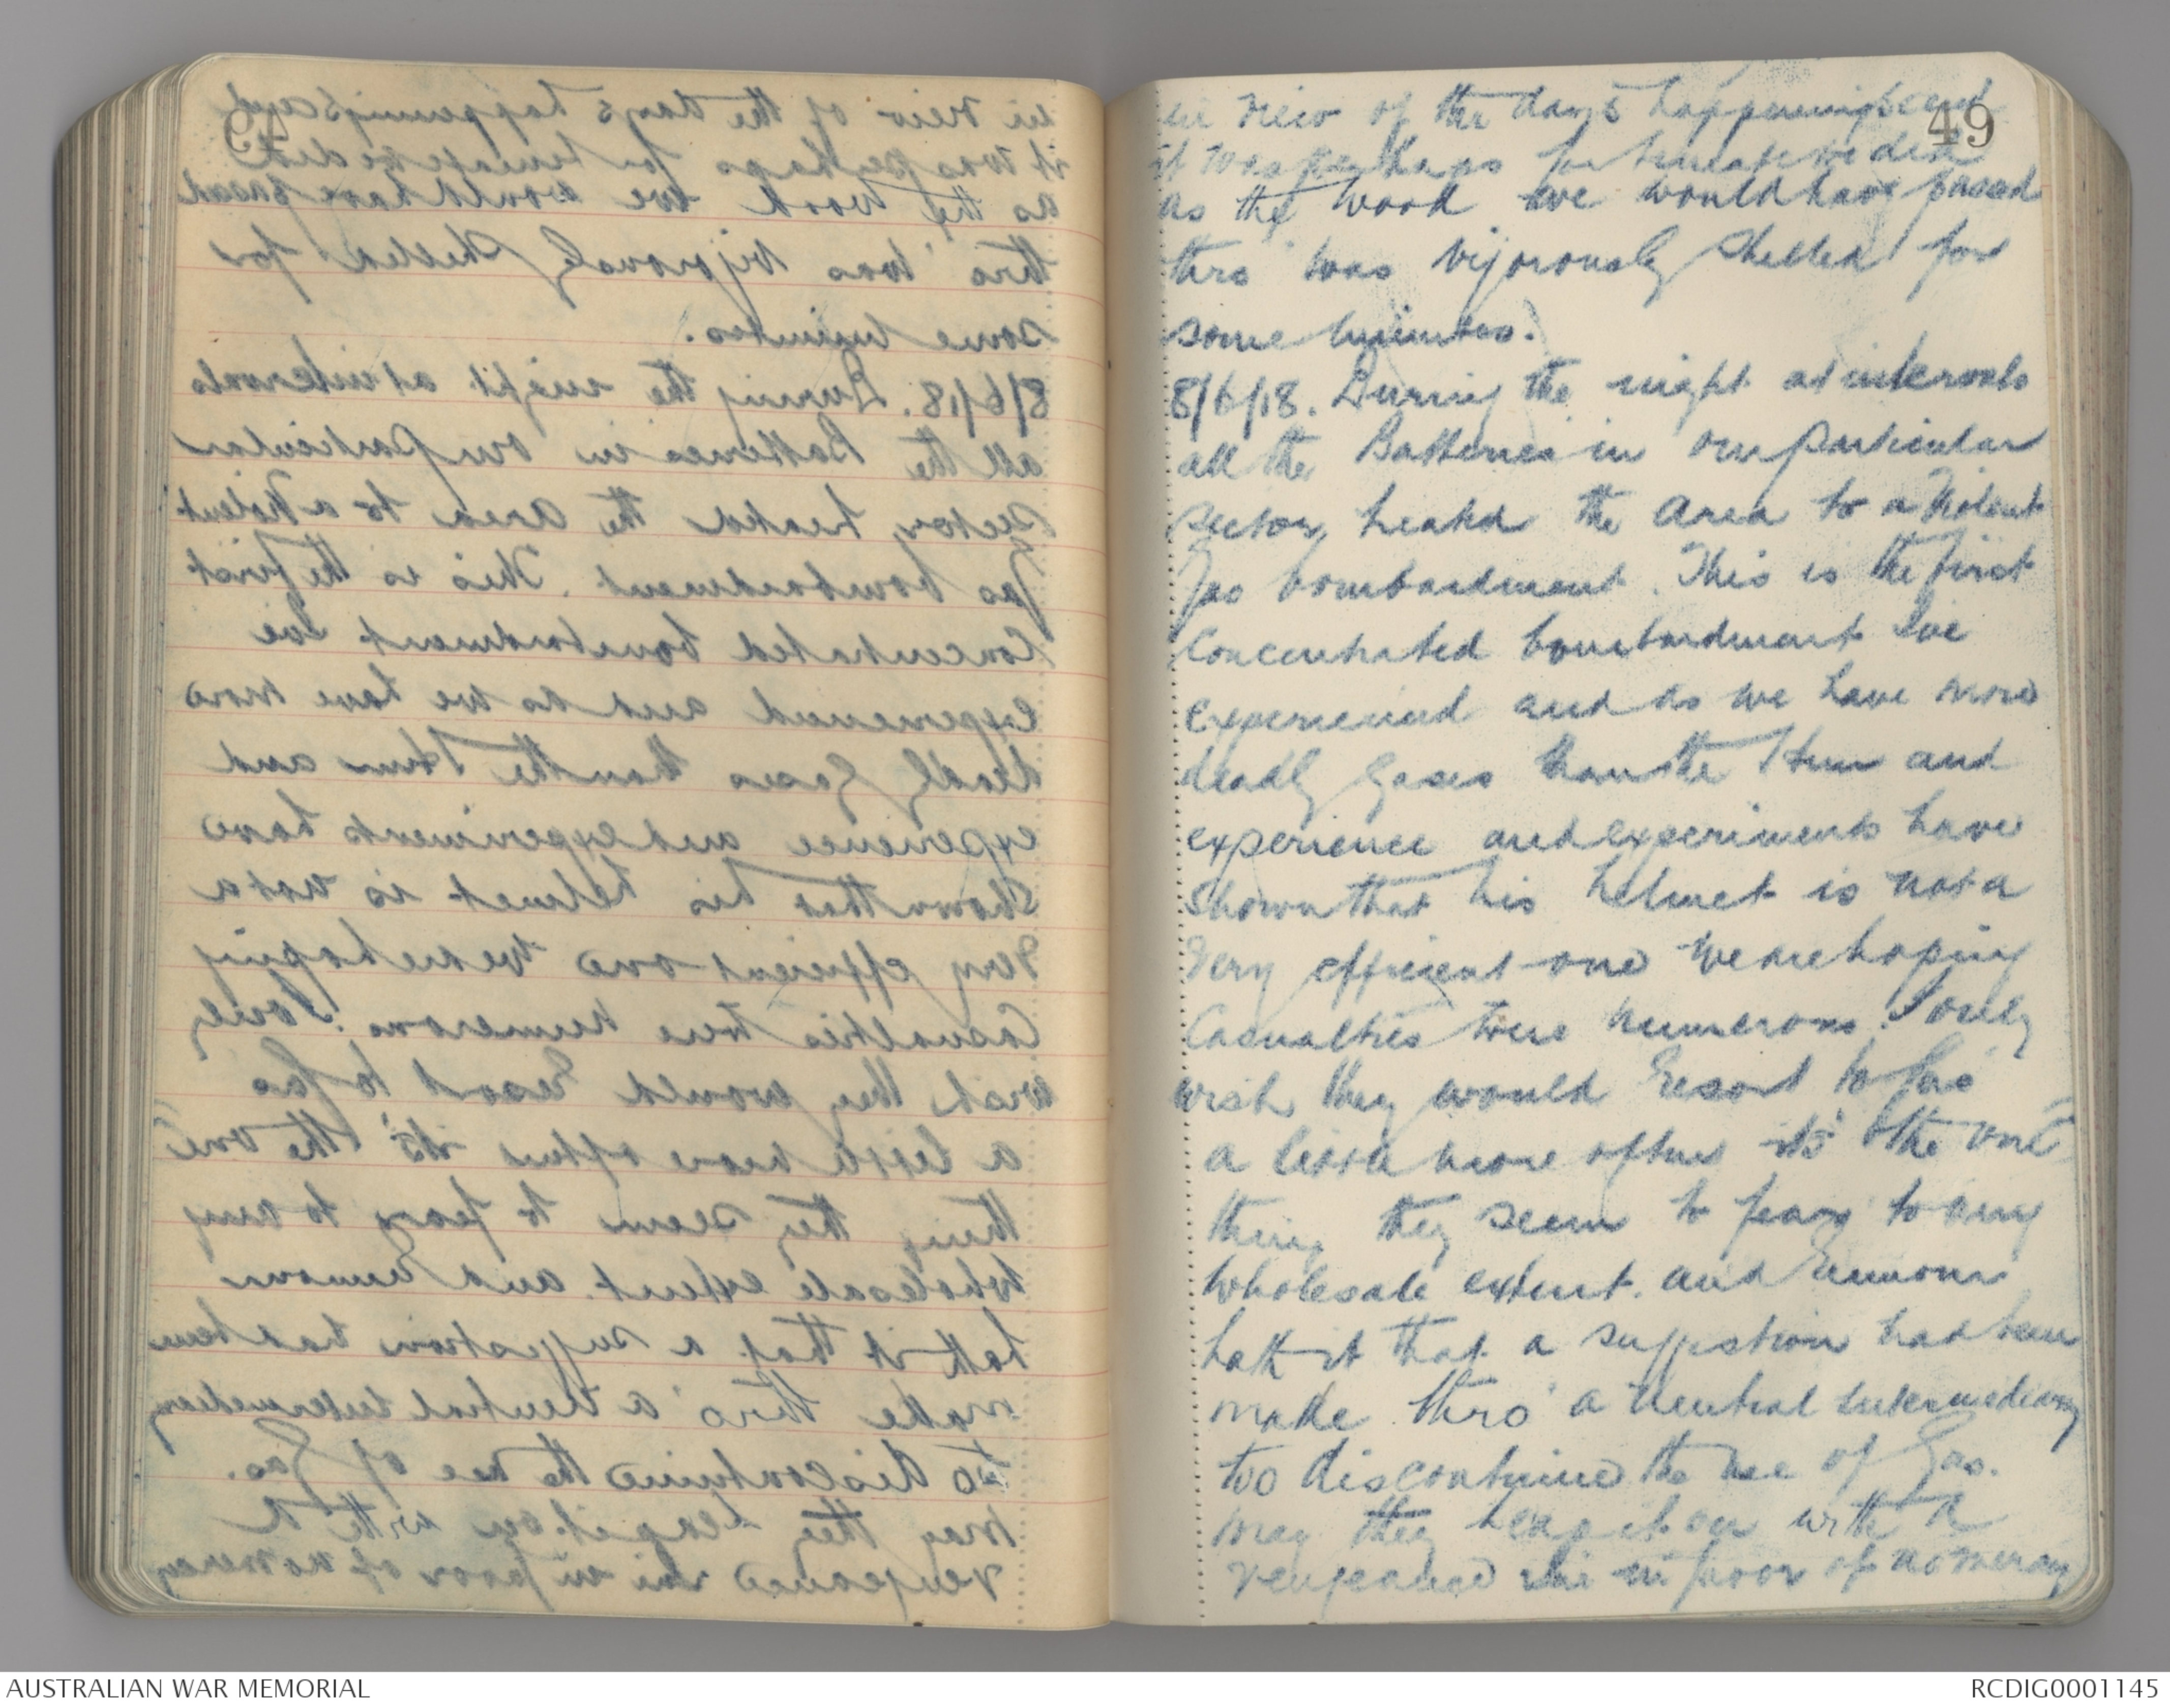 49
in view of the day's happenings and
it was perhaps fortunate we did
as the wood we would have passed
thro' was vigorously shelled for
some minutes.
8/6/18. During the night at intervals
all the Batteries in our particular
sector, treated the area to a violent
Gas bombardment. This is the first
Concentrated bombardment I've
experienced and as we have more
deadly gases than the Hun and
experience and experiments have
shown that his helmet is not a
very efficient one we are hoping
Casualties were numerous. I only
wish they would resort to Gas
a little more often its' the one
thing they seem to fear to any
wholesale extent. and rumour
hath it that a suggestion had been
made thro' a neutral intermediary
to discontinue the use of Gas.
may they keep it on with a
vengeance I'm in favor of no mercy
AUSTRALIAN WAR MEMORIAL
RCDIG0001145